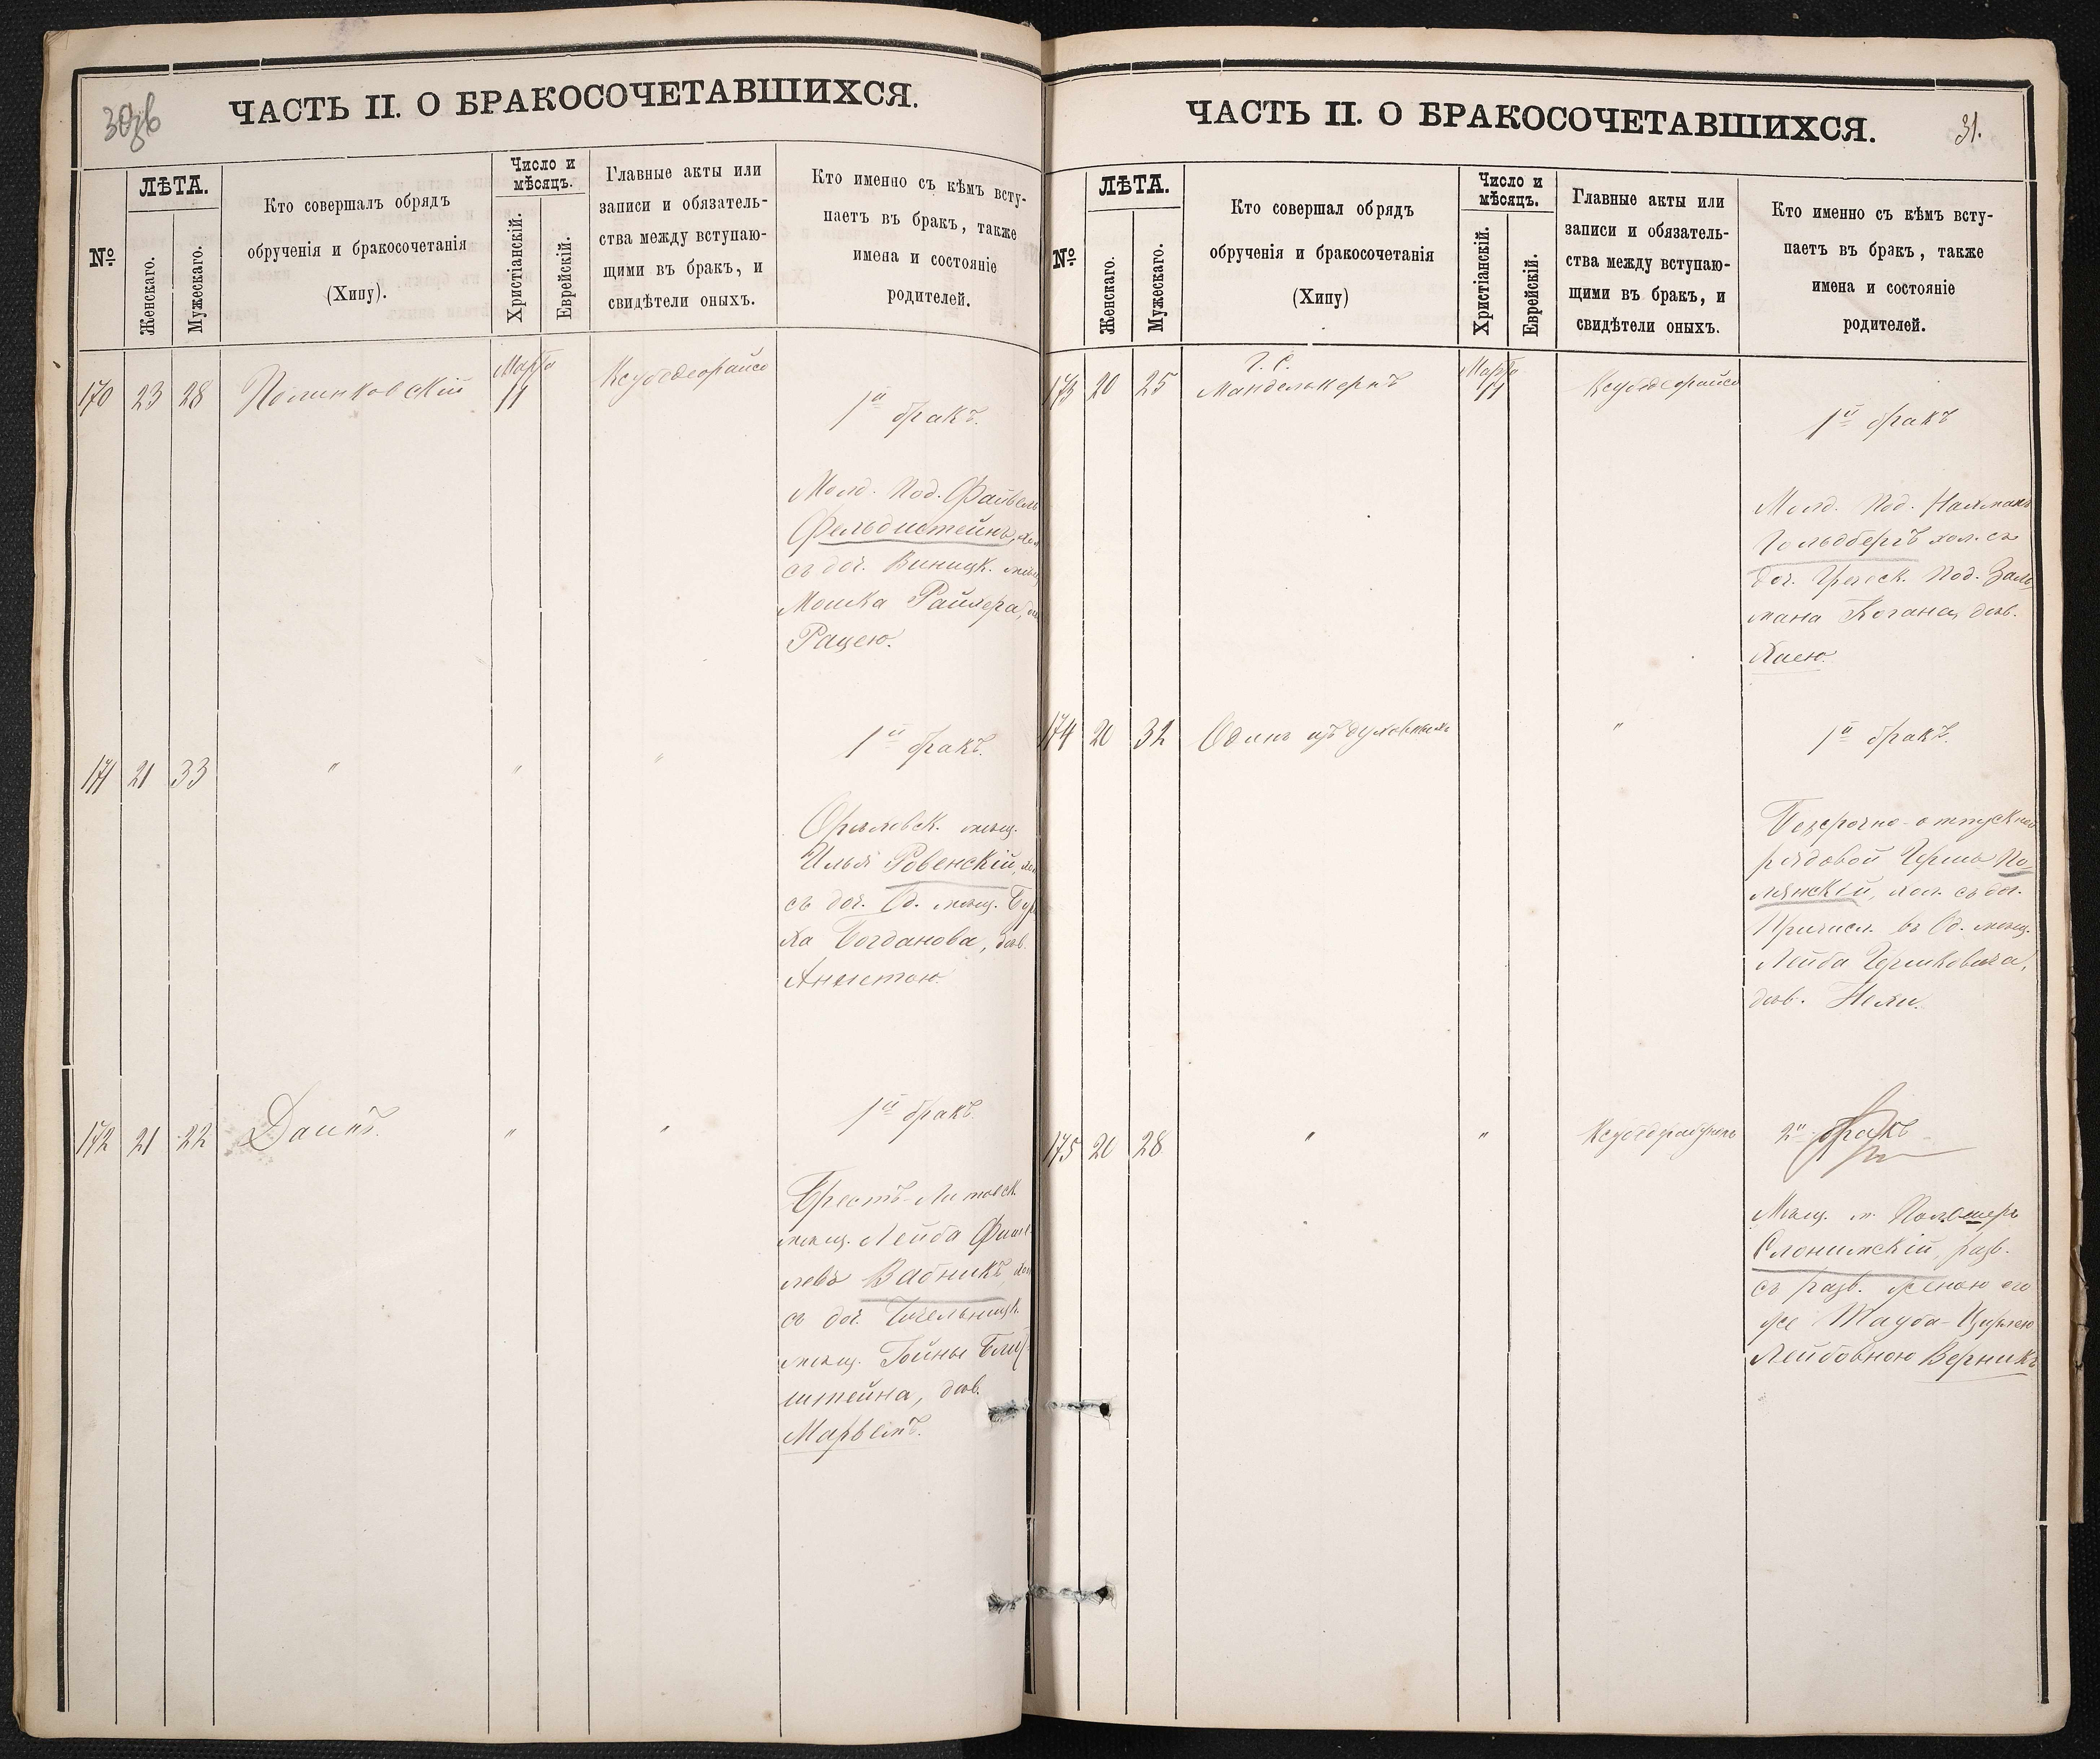 30об
ЧАСТЬ II. О БРАКОСОЧЕТАВШИХСЯ.
№
ЛѢТА.
Женскаго.
Мужескаго.
Кто совершалъ обрядъ
обрученія и бракосочетанія
(Хипу).
Число и
мѣсяцъ.
Христіанскій.
Еврейскій.
Главные акты или
записи и обязатель-
ства между вступаю-
щими въ бракъ, и
свидѣтели оныхъ.
Кто именно съ кѣмъ всту-
паетъ въ бракъ, также
имена и состояніе
родителей.
170 23 28 Полинковскій Марта
11
1й бракъ.
Молд. Под. Файвель
Фельдштейнъ,
съ доч. Виницк. мѣщ.
Мошка Райхера,
Рацею.
171 21 33 " " "
1й бракъ.
мѣщ.
Илья Ровенскій,
съ доч. Од. мѣщ.
ха Богданова, дѣв.
172 21 22 " "
1й бракъ.
Брестъ-Литовск.
мѣщ. Лейба
левъ Вабникъ,
съ доч.
мѣщ. Гойны
штейна, дѣв.
ЧАСТЬ II. О БРАКОСОЧЕТАВШИХСЯ.
31.
№
ЛѢТА.
Женскаго.
Мужескаго.
Кто совершал обрядъ
обрученія и бракосочетанія
(Хипу)
Число и
мѣсяцъ.
Христіанскій.
Еврейскій.
Главные акты или
записи и обязатель-
ства между вступаю-
щими въ бракъ, и
свидѣтели оныхъ.
Кто именно съ кѣмъ всту-
паетъ въ бракъ, также
имена и состояніе
родителей.
173 20 25 Г. С. Манделькернъ Марта
11
1й бракъ
Молд. Под. Нахманъ
Гольдбергъ хол. съ
доч. Греческ. Под. Зал
мана Когана, дѣв.
Хаею.
174 20 32 Одинъ изъ духовныхъ "
1й бракъ.
Безсрочно-отпускной
рядовой Гершъ По-
лянскій, хол. съ доч.
Причисл. въ Од. мѣщ.
Лейба Гершковича,
дѣв.
175 20 28 " "
2й бракъ
Мѣщ. м.
Слонимскій, разв.
съ разв. женою его
же Тауба-
Лейбовною Верникъ